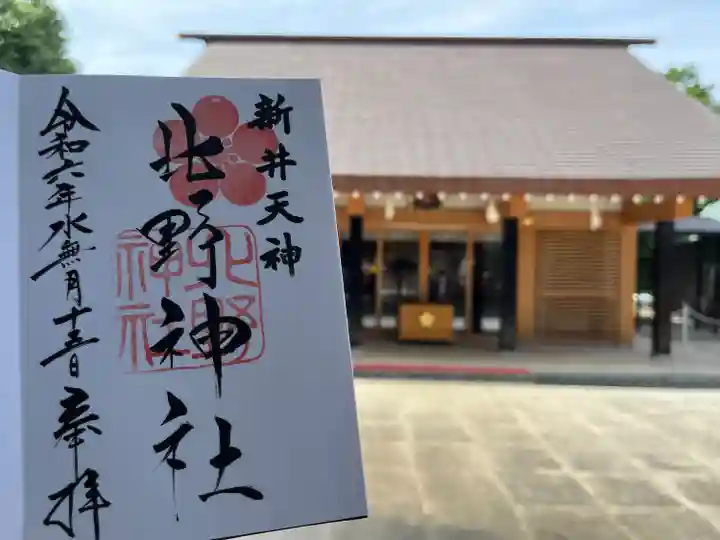 新井天神
北野神社
北野
神社
令和六年水無月十五日奉拝